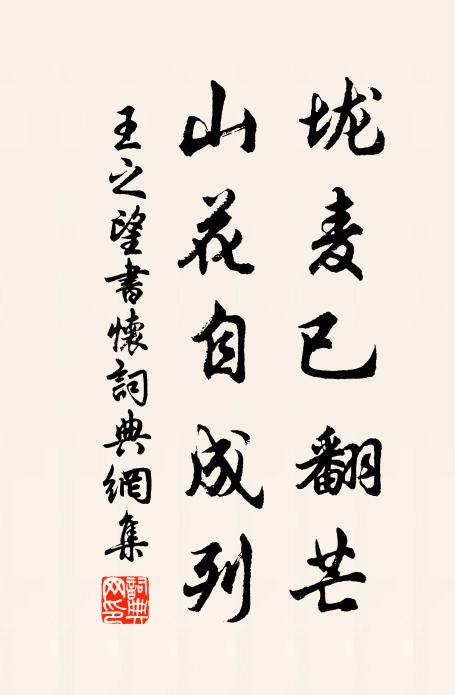 垅麦已翻芒
山花自成列
王之望書懷詞典網集
詞典网印